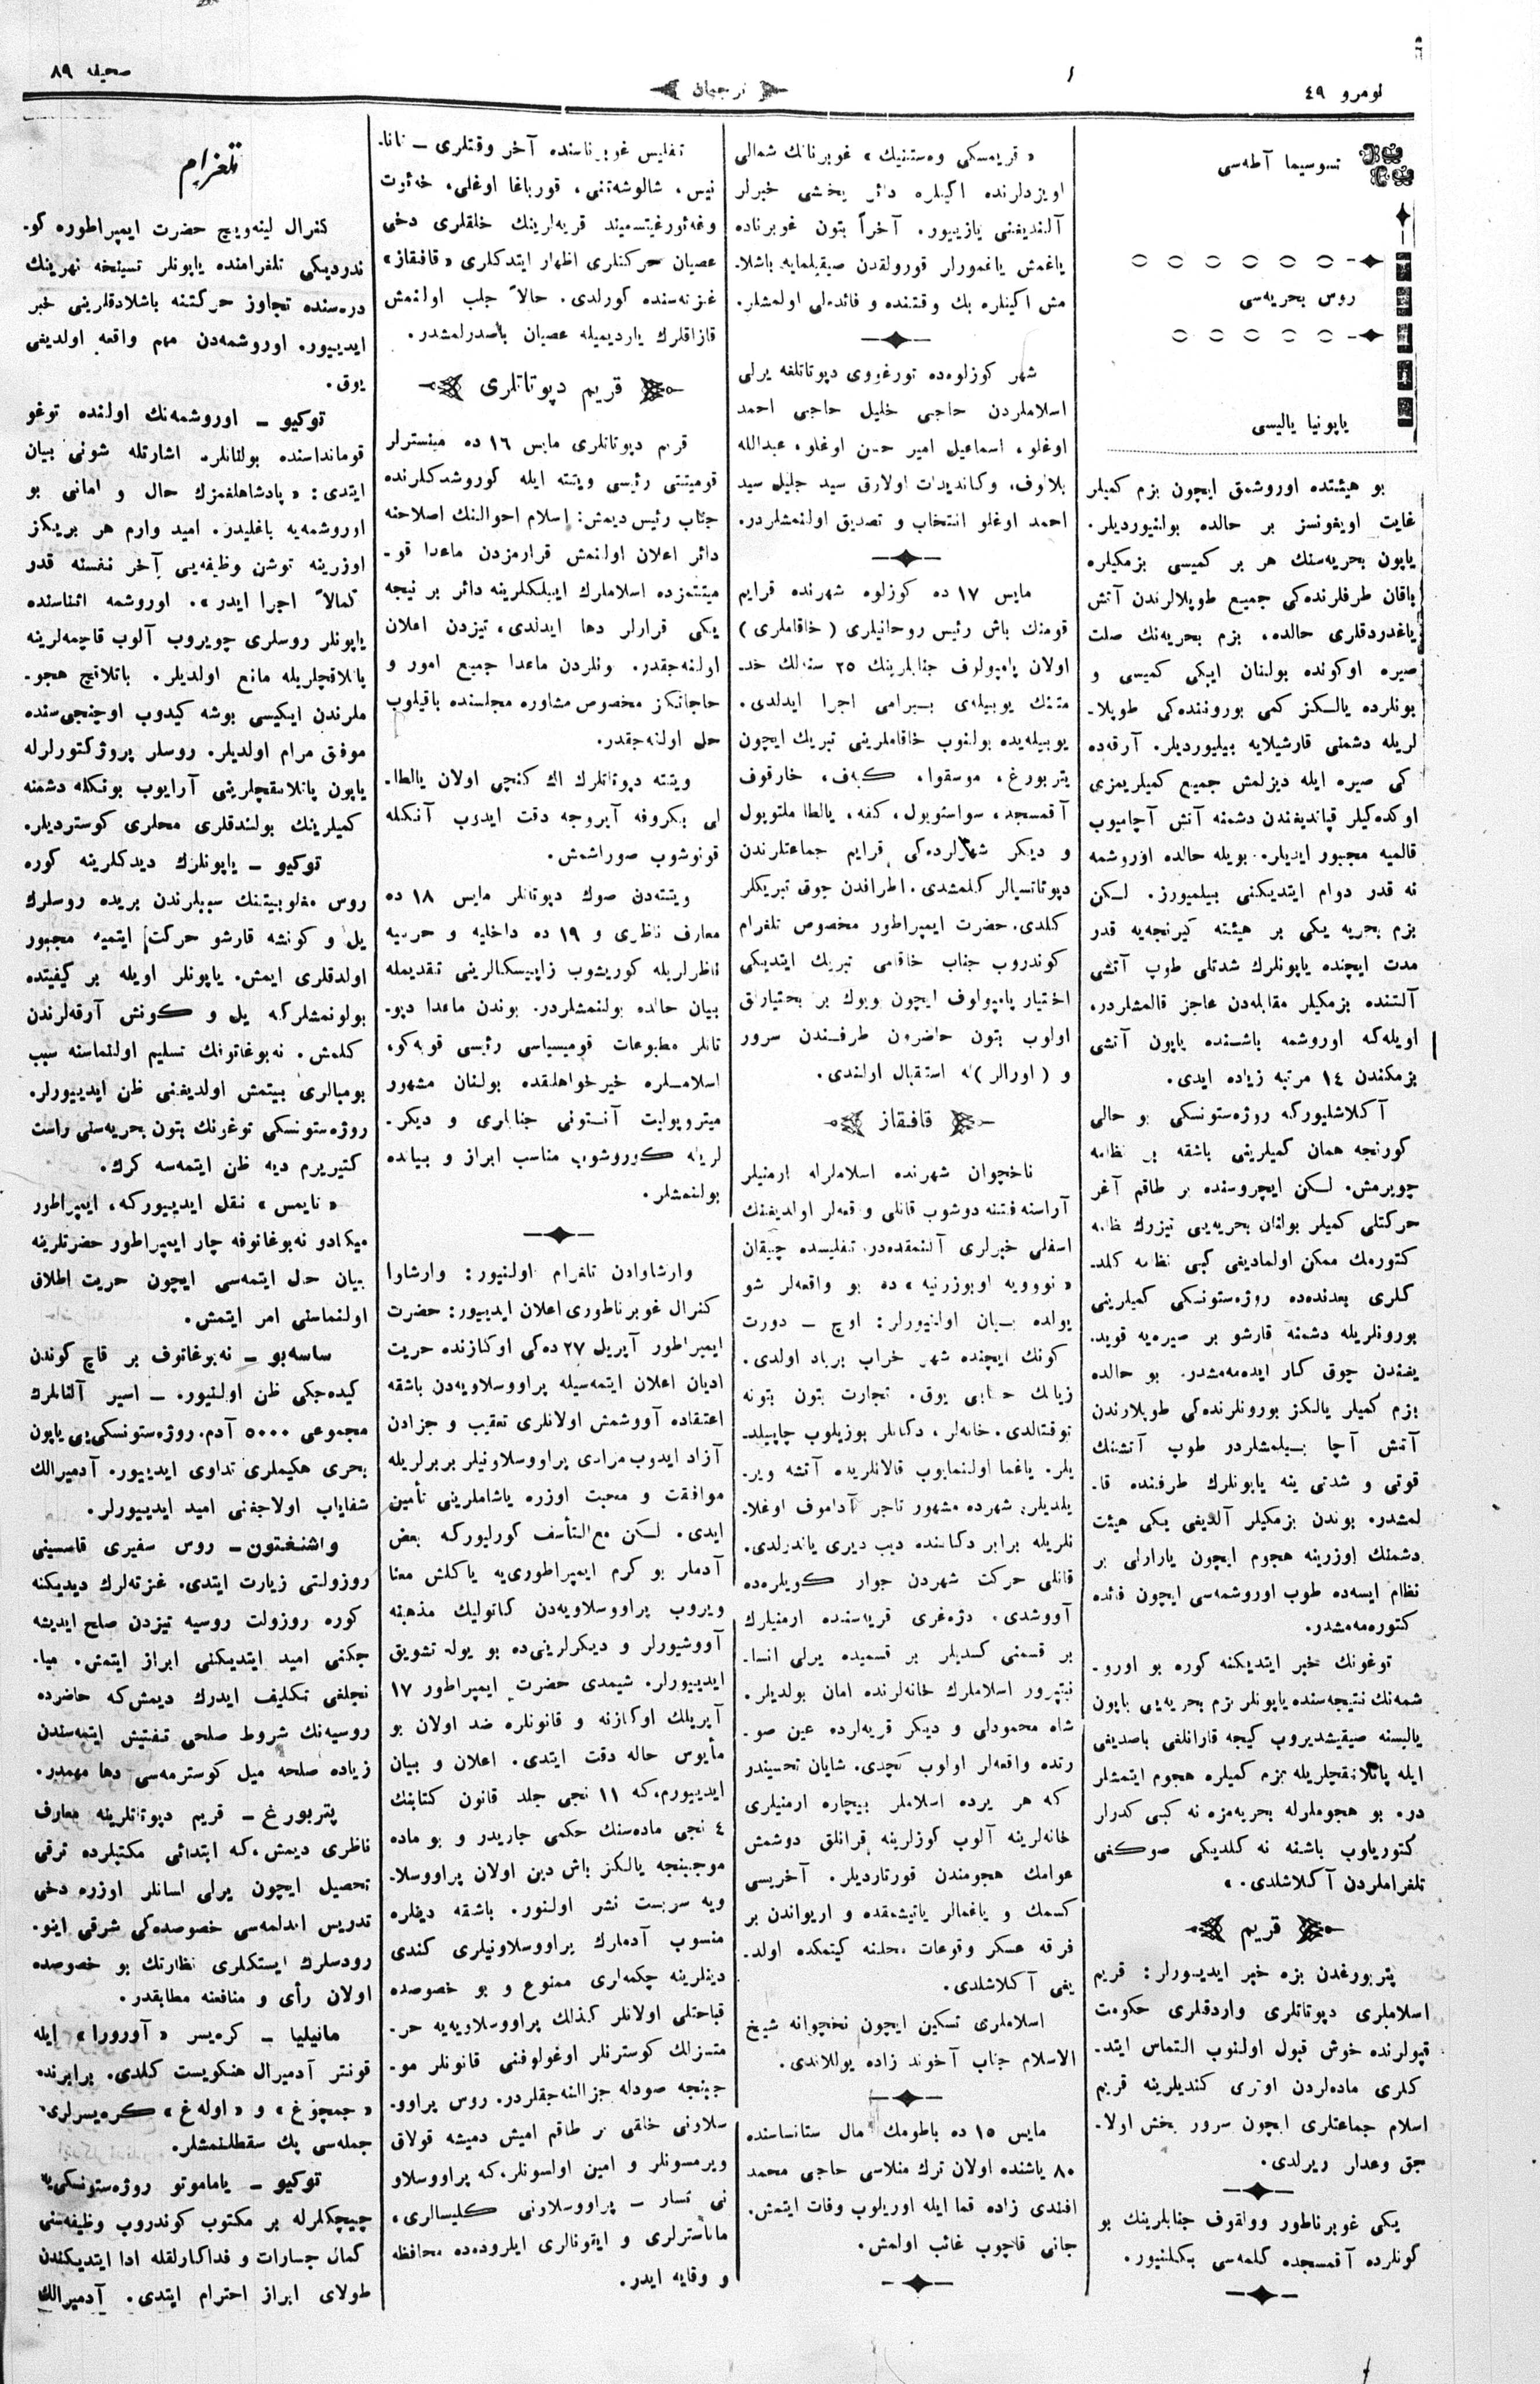 نومرو ٤٩
ترجمان
صحیفه ٨٩
تسوسیما آطه‌سی
روس بحریه‌سی
یاپونیا یالیسی
بو هیئتده اوروشمق ایچون بزم کمیلر
غایت اویغونسز بر حالده بولنیوردیلر.
یاپون بحریه‌سنك هر بر کمیسی بزمکیلره
باقان طرفلرنده‌کی جمیع طوپلارندن آتش
یاغدردقلری حالده، بزم بحریه‌نك صلت
صیره اوکونده بولنان ایکی کمیسی و
بونلرده یالکز کمی بوروننده‌کی طوپلا-
لریله دشمنی قارشیلایه بیلیوردیلر. آرقه‌ده
کی صیره ایله دیزلمش جمیع کمیلریمزی
اوکده‌کیلر قپاندیغندن دشمنه آتش آچامیوب
قالمیه مجبور ایدیلر. بویله حالده اوروشمه
نه قدر دوام ایتدیکنی بیلمیورز. لکن
بزم بحریه یکی بر هیئته کیرنجه‌یه قدر
مدت ایچنده یاپونلرك شدتلی طوپ آتشی
آلتنده بزمکیلر مقابله‌دن عاجز قالمشلردر.
اویله‌که اوروشمه باشنده یاپون آتشی
بزمکندن ١٤ مرتبه زیاده ایدی.
آکلاشلیورکه روژه‌ستونسکی بو حالی
کورنجه همان کمیلرینی باشقه بر نظامه
چویرمش. لکن ایچروسنده بر طاقم آغر
حرکتلی کمیلر بولنان بحریه‌یی تیزرك نظامه
کتورمك ممکن اولمادیغی کبی نظامه کلد-
کلری بعدنده‌ده روژه‌ستونسکی کمیلرینی
بورونلریله دشمنه قارشو بر صیره‌یه قوید-
یغندن چوق کار ایده‌مه‌مشدر. بو حالده
بزم کمیلر یالکز بورونلرنده‌کی طوپلارندن
آتش آچا بیلمشلردر طوپ آتشنك
قوتی و شدتی ینه یاپونلرك طرفنده قا-
لمشدر. بوندن بزمکیلر آلدیغی یکی هیئت
دشمنك اوزرینه هجوم ایچون یارارلی بر
نظام ایسه‌ده طوپ اوروشمه‌سی ایچون فائده
کتوره‌مه‌مشدر.
توغونك خبر ایتدیکنه کوره بو اورو-
شمه‌نك نتیجه‌سنده یاپونلر بزم بحریه‌یی یاپون
یالیسنه صیقیشدیروب کیجه قارانلغی باصدیغی
ایله پاتلانقچلریله بزم کمیلره هجوم ایتمشلر
در. بو هجوملرله بحریه‌مزه نه کبی کدرلر
کتوریاوب باشنه نه کلدیکی صوکغی
تلغراملردن آکلاشلدی.»
قریم
پتربورغدن بزه خبر ایدیورلر: قریم
اسلاملری دپوتاتلری واردقلری حکومت
قپولرنده خوش قبول اولنوب التماس ایتد-
کلری ماده‌لردن اوتری کندیلرینه قریم
اسلام جماعتلری ایچون سرور بخش اولا-
جق وعدلر ویرلدی.
یکی غوبرناطور وولقوف جنابلرینك بو
کونلرده آقمسجده کلمه‌سی بکلنیور.
« قریمسکی وه‌ستنیك » غوبرنانك شمالی
اویزدلرنده اکینلره دائر یخشی خبرلر
آلندیغنی یازییور. آخراً بتون غوبرناده
یاغمش یاغمورلر قورولقدن صیقیلمایه باشلا-
مش اکینلره پك وقتنده و فائده‌لی اولمشلر.
شهر کوزلوه‌ده تورغووی دپوتاتلغه یرلی
اسلاملردن حاجی خلیل حاجی احمد
اوغلو، اسماعیل امیر حسن اوغلو، عبدالله
بلالوف، وکاندیدات اولارق سید جلیل سید
احمد اوغلو انتخاب و تصدیق اولنمشلردر.
مایس ١٧ ده کوزلوه شهرنده قرایم
قومنك باش رئیس روحانیلری ( خاقاملری )
اولان پامپولوف جنابلرینك ٢٥ سنه‌لك خد-
متنك یوبیله‌ی بیرامی اجرا ایدلدی.
یوبیله‌یده بولنوب خاقاملرینی تبریك ایچون
پتربورغ، موسقوا، کیه‌ف، خارقوف
آقمسجد، سواستوپول، کفه، یالطا ملتوپول
و دیکر شهرلرده‌کی قرایم جماعتلرندن
دپوتاتسیالر کلمشدی. اطرافدن چوق تبریکلر
کلدی. حضرت ایمپراطور مخصوص تلغرام
کوندروب جناب خاقامی تبریك ایتدیکی
اختیار پامپولوف ایچون بویوك بر بختیارلق
اولوب بتون حاضرون طرفندن سرور
و ( اورالر ) له استقبال اولندی.
قافقاز
ناخچوان شهرنده اسلاملرله ارمنیلر
آراسنه فتنه دوشوب قانلی وقعه‌لر اولدیغنك
اسفلی خبرلری آلنمقده‌در. تفلیسده چیقان
« نوویه اوبوزرنیه » ده بو واقعه‌لر شو
یولده بیان اولنیورلر: اوچ – دورت
کونك ایچنده شهر خراب برباد اولدی.
زیانك حسابی یوق. تجارت بتون بتونه
توقتالدی. خانه‌لر، دکانلر بوزیلوب چاپیلد-
یلر. یاغما اولنمایوب قالانلریده آتشه ویر-
یلدیلر. شهرده مشهور تاجر آداموف اوغلا-
نلریله برابر دکاننده دیب دیری یاندرلدی.
قانلی حرکت شهردن جوار کویلره‌ده
آووشدی. دژه‌غری قریه‌سنده ارمنیلرك
بر قسمنی کسدیلر بر قسمیده یرلی انسا-
نیتپرور اسلاملرك خانه‌لرنده امان بولدیلر.
شاه محمودلی و دیکر قریه‌لرده عین صو-
رتده واقعه‌لر اولوب کچدی. شایان تحسیندر
که هر یرده اسلاملر بیچاره ارمنیلری
خانه‌لرینه آلوب کوزلرینه قرانلق دوشمش
عوامك هجومندن قورتاردیلر. آخریسی
کسمك و یاغمالر یاتیشمقده و اریواندن بر
فرقه عسکر وقوعات محلنه کیتمکده اولد-
یغی آکلاشلدی.
اسلاملری تسکین ایچون نخچوانه شیخ
الاسلام جناب آخوند زاده یوللاندی.
مایس ١٥ ده باطومك مال ستانساسنده
٨٠ یاشنده اولان ترك منلاسی حاجی محمد
افندی زاده قما ایله اوریلوب وفات ایتمش.
جانی قاچوب غائب اولمش.
تفلیس غوبرناسنده آخر وقتلری – نانا-
نیس، شالوشه‌تنی، قورباغا اوغلی،
وغه‌ئورغیتسمیند قریه‌لرینك خلقلری دخی
عصیان حرکتلری اظهار ایتدکلری « قافقاز »
غزته‌سنده کورلدی. حالاً جلب اولنمش
قازاقلرك یاردیمیله عصیان باصدرلمشدر.
قریم دپوتاتلری
قرم دپوتاتلری مایس ١٦ ده مینسترلر
قومیتتی رئیسی ویتته ایله کوروشدکلرنده
جناب رئیس دیمش: اسلام احوالنك اصلاحنه
دائر اعلان اولنمش قرارمزدن ماعدا قو-
میتتمزده اسلاملرك ایبیلکلرینه دائر بر نیجه
یکی قرارلر دها ایدلدی، تیزدن اعلان
اولنه‌جقدر. ونلردن ماعدا جمیع امور و
حاجاتکز مخصوص مشاوره مجلسنده باقیلوب
حل اولنه‌جقدر.
ویتته دپوتاتلرك اك کنچی اولان یالطا-
لی بکروفه آیروجه دقت ایدوب آنکله
قونوشوب صوراشمش.
ویتته‌دن صوك دپوتاتلر مایس ١٨ ده
معارف ناظری و ١٩ ده داخلیه و حربیه
ناظرلریله کوریشوب زاپیسکالرینی تقدیمله
بیان حالده بولنمشلردر. بوندن ماعدا دپو-
تاتلر مطبوعات قومیسیاسی رئیسی قوبه‌کو،
اسلاملره خیرخواهلقده بولنان مشهور
میتروپولیت آنتونی جنابلری و دیکر-
لریله کوروشوب مناسب ابراز و بیانده
بولنمشلر.
وارشاوادن تلغرام اولنیور: وارشاوا
کنرال غوبرناطوری اعلان ایدییور: حضرت
ایمپراطور آپریل ٢٧ ده‌کی اوکازنده حریت
ادیان اعلان ایتمه‌سیله پراووسلاویه‌دن باشقه
اعتقاده آووشمش اولانلری تعقیب و جزادن
آزاد ایدوب مرادی پراووسلاونیلر بربرلریله
موافقت و محبت اوزره یاشاملرینی تأمین
ایدی. لکن مع‌التأسف کورلیورکه بعض
آدملر بو کرم ایمپراطوری‌یه یاکلش معنا
ویروب پراووسلاویه‌دن کاتولیك مذهبنه
آووشیورلر و دیکرلرینی‌ده بو یوله تشویق
ایدییورلر. شیمدی حضرت ایمپراطور ١٧
آپریلك اوکازنه و قانونلره ضد اولان بو
مأیوس حاله دقت ایتدی. اعلان و بیان
ایدییورم،که ١١ نجی جلد قانون کتابنك
٤ نجی ماده‌سنك حکمی جاریدر و بو ماده
موجبنجه یالکز باش دین اولان پراووسلا-
ویه سربست نشر اولنور. باشقه دینلره
منسوب آدملرك پراووسلاونیلری کندی
دینلرینه چکمه‌لری ممنوع و بو خصوصده
قباحتلی اولانلر کذلك پراووسلاویه‌یه حر-
متسزلك کوسترنلر اوغولوفنی قانونلر مو-
جبنجه صودله جزالنه‌جقلردر. روس پراوو-
سلاونی خلقی بر طاقم امیش دمیشه قولاق
ویرمسونلر و امین اولسونلر،که پراووسلاو
نی تسار – پراووسلاونی کلیسالری،
ماناسترلری و ایقونالری ایلروده‌ده محافظه
و وقایه ایدر.
تلغرام
کنرال لینه‌ویچ حضرت ایمپراطوره کو-
ندردیکی تلغرامنده یاپونلر تسینخه نهرینك
دره‌سنده تجاوز حرکتنه باشلادقلرینی خبر
ایدییور. اوروشمه‌دن مهم واقعه اولدیغی
یوق.
توکیو – اوروشمه‌نك اولنده توغو
قومانداسنده بولنانلره اشارتله شونی بیان
ایتدی: « پادشاهلغمزك حال و امانی بو
اوروشمه‌یه باغلیدر. امید وارم هر بریکز
اوزرینه توشن وظیفه‌یی آخر نفسنه قدر
کمالاً اجرا ایدر». اوروشمه اثناسنده
یاپونلر روسلری چویروب آلوب قاچمه‌لرینه
پاتلاقچلریله مانع اولدیلر. پاتلاقچ هجو-
ملرندن ایکیسی بوشه کیدوب اوچنجی‌سنده
موفق مرام اولدیلر. روسلر پروژکتورلرله
یاپون پاتلانقچلرینی آرایوب بونکله دشمنه
کمیلرینك بولندقلری محللری کوستردیلر.
توکیو – یاپونلرك دیدکلرینه کوره
روس مغلوبیتنك سببلرندن بریده روسلرك
یل و کونشه قارشو حرکت ایتمیه مجبور
اولدقلری ایمش. یاپونلر اویله بر کیفیتده
بولونمشلرکه یل و کونش آرقه‌لرندن
کلمش. نه‌بوغاتوفك تسلیم اولنماسنه سبب
بومبالری بیتمش اولدیغنی ظن ایدییورلر.
روژه‌ستونسکی توغرنك بتون بحریه‌سنی راست
کتیریرم دیه ظن ایتمه‌سه کرك.
« تایمس » نقل ایدییورکه، ایمپراطور
میکادو نه‌بوغاتوفه چار ایمپراطور حضرتلرینه
بیان حال ایتمه‌سی ایچون حریت اطلاق
اولنماسنی امر ایتمش.
ساسه‌بو – نه‌بوغاتوف بر قاچ کوندن
کیده‌جکی ظن اولنیور. – اسیر آلنانلرك
مجموعی ٥٠٠٠ آدم. روژه‌ستونسکی‌یی یاپون
بحری هکیملری تداوی ایدییور. آدمیرالك
شفایاب اولاجغنی امید ایدییورلر.
واشنغتون – روس سفیری قاسسینی
روزولتی زیارت ایتدی. غزته‌لرك دیدیکنه
کوره روزولت روسیه تیزدن صلح ایدیشه
جکنی امید ایتدیکنی ابراز ایتمش. میا-
نجلغی تکلیف ایدرك دیمش‌که حاضرده
روسیه‌نك شروط صلحی تفتیش ایتمه‌سندن
زیاده صلحه میل کوسترمه‌سی دها مهمدر.
پتربورغ – قریم دپوتاتلرینه معارف
ناظری دیمش،که ابتدائی مکتبلرده ترقی
تحصیل ایچون یرلی لسانلر اوزره دخی
تدریس ایدلمه‌سی خصوصده‌کی شرقی اینو-
رودسلرك ایستکلری نظارتك بو خصوصده
اولان رأی و منافعنه مطابقدر.
مانیلیا – کره‌یسر « آورورا » ایله
قونتر آدمیرال هنکویست کلدی. برابرنده
« جمچوغ » و « اوله‌غ » کره‌یسرلری
جمله‌سی پك سقطلنمشلر.
توکیو – یاماموتو روژه‌ستونسکی‌یه
چیچکلرله بر مکتوب کوندروب وظیفه‌سنی
کمال جسارات و فداکارلقله ادا ایتدیکندن
طولای ابراز احترام ایتدی. آدمیرالك